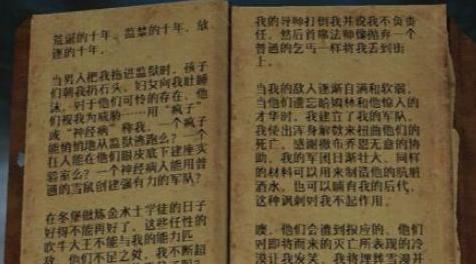 荒诞的十年。监禁的十年，放
逐的十年。
当男人把我拖进监狱时，孩子
们朝我扔石头，妇女向我吐唾
沫。对于他们可怜的存在，他
们视我为威胁……用“疯子”
或“神经病”称我。一个疯子
能悄悄地从监狱逃跑么？一个
狂人能在他们眼皮底下建座实
验室么？一个神经病人能用普
通的雪鼠创建强有力的军队？
在冬堡做炼金术士学徒的日子
好得不能再好了，这些任性的
吹牛大王不能与我的能力匹
敌，他们不足之处，我不断超
我的导师打倒我并说我不负责
任，然后首席法师像抛弃一个
普通的乞丐一样将我丢到街
上。
当我的敌人逐渐自满和软弱，
当他们遗忘哈姆林和他惊人的
才华时，我建立了我的军队，
我使出浑身解数来扭曲他们的
死亡。感谢撒布乔恩无意的协
助，我的军团日渐壮大。同样
的材料可以用来制造他的肮脏
酒水，也可以喃育我的后代，
这种讽刺对我不起作用。
噢，他们会遭到报应的，他们
对即将而来的灭亡所表现的冷
漠让我发笑。我将埋